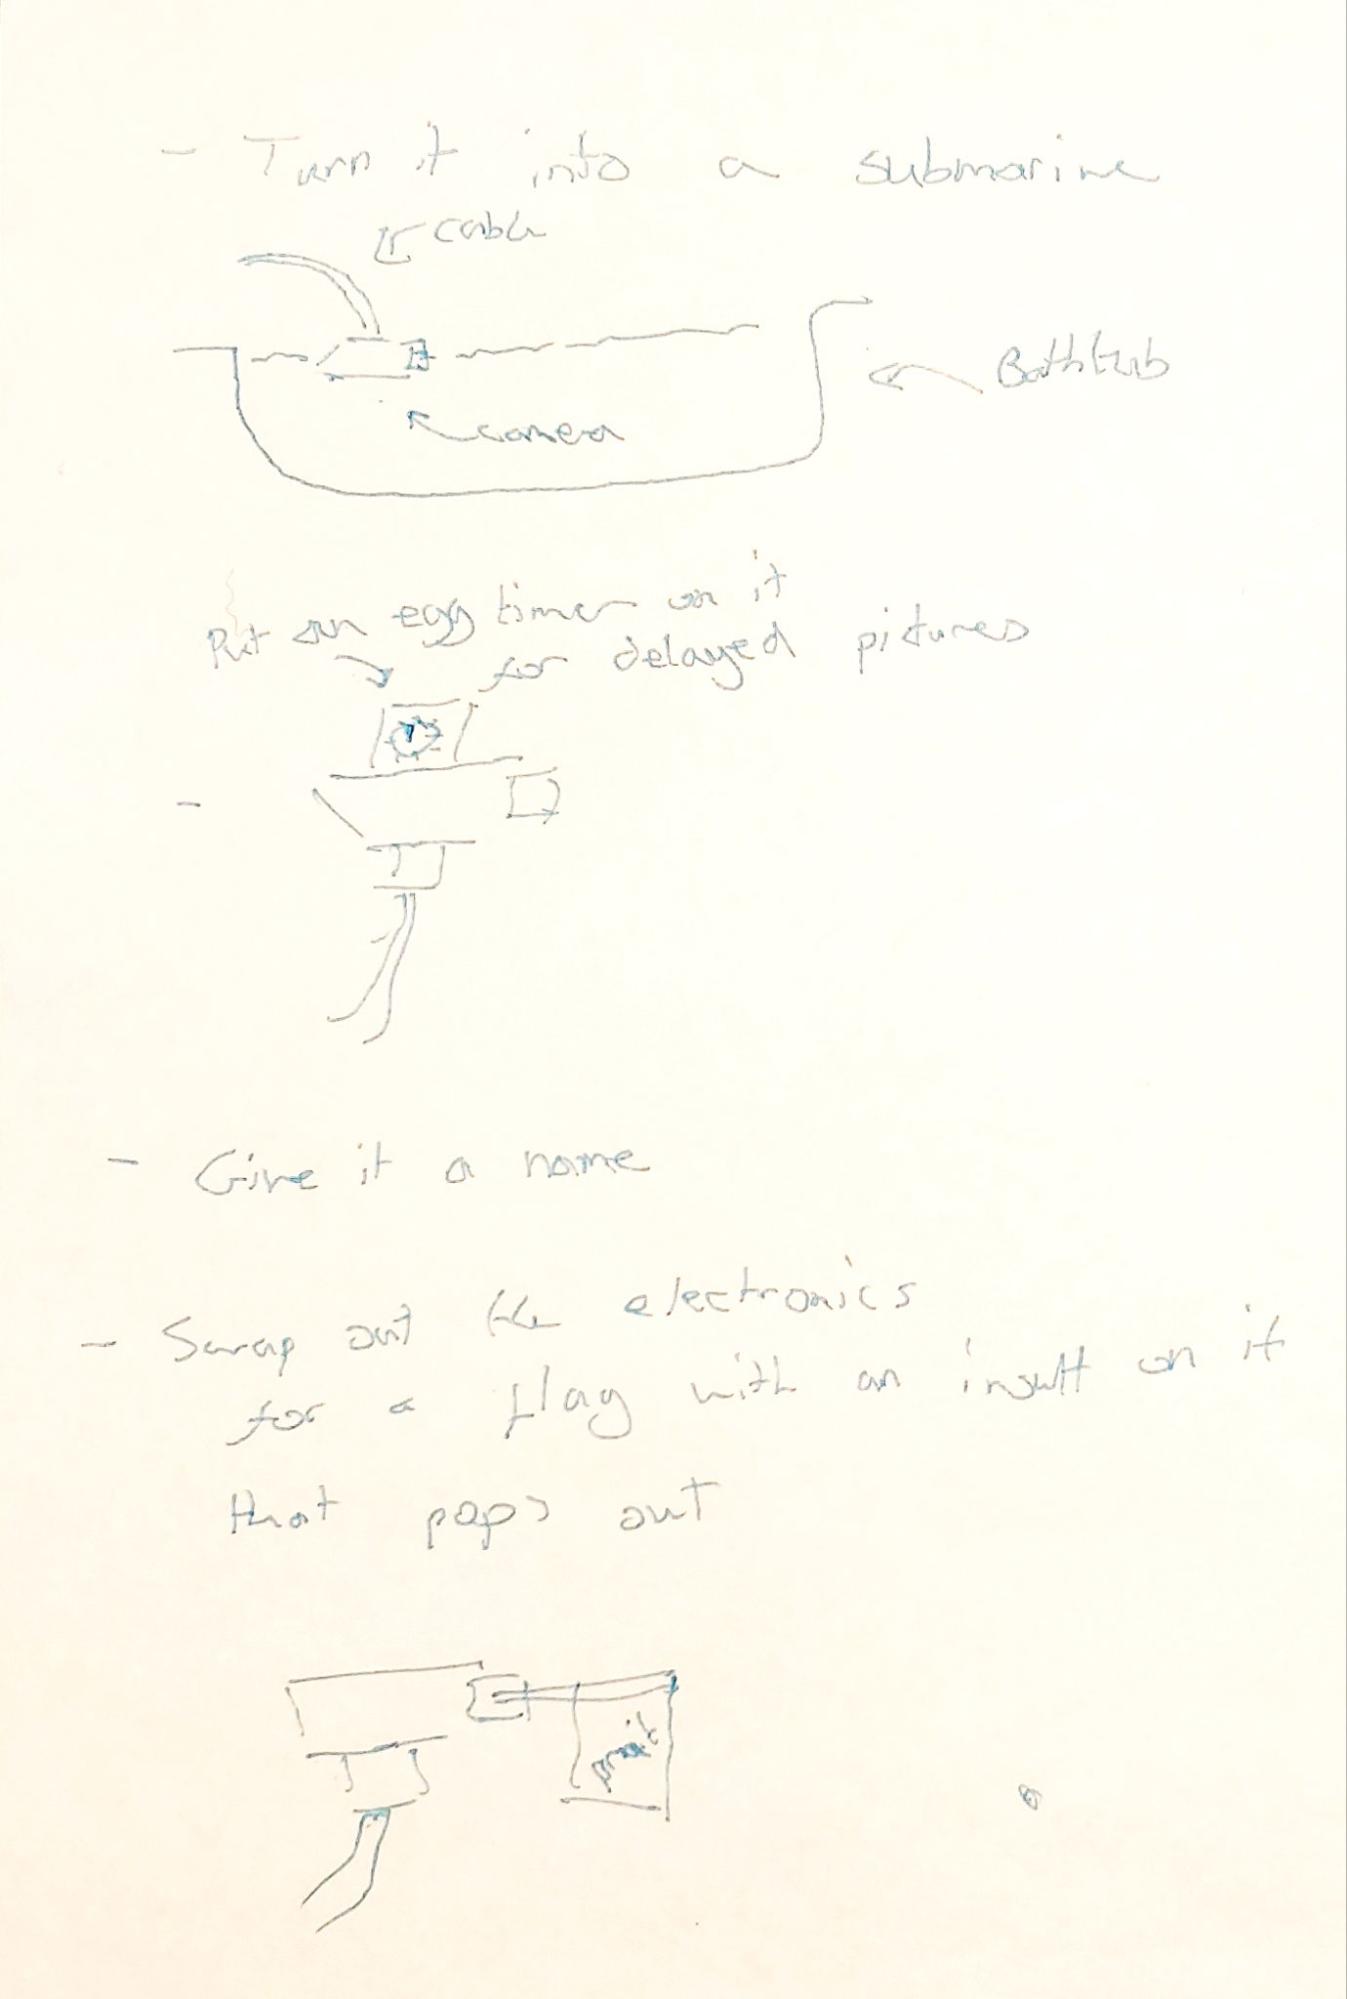 - Turn it into a submarine
cable
Bathtub
camera
Put an egg timer on it
for delayed pictures
-
- Give it a name
- Swap out the electronics
for a flag with an insult on it
that pops out